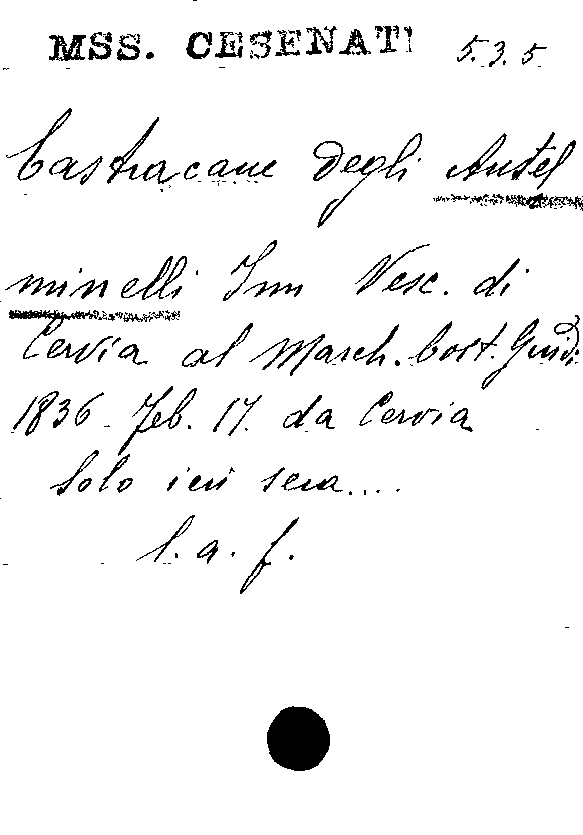 MSS. CESENATI 5.3.5
Castracane degli Antel
minelli Inn Vesc. di
Cervia al March. Cost. Guidi
1836 Feb. 17. da Cervia
Solo ieri sera....
l. a. f.